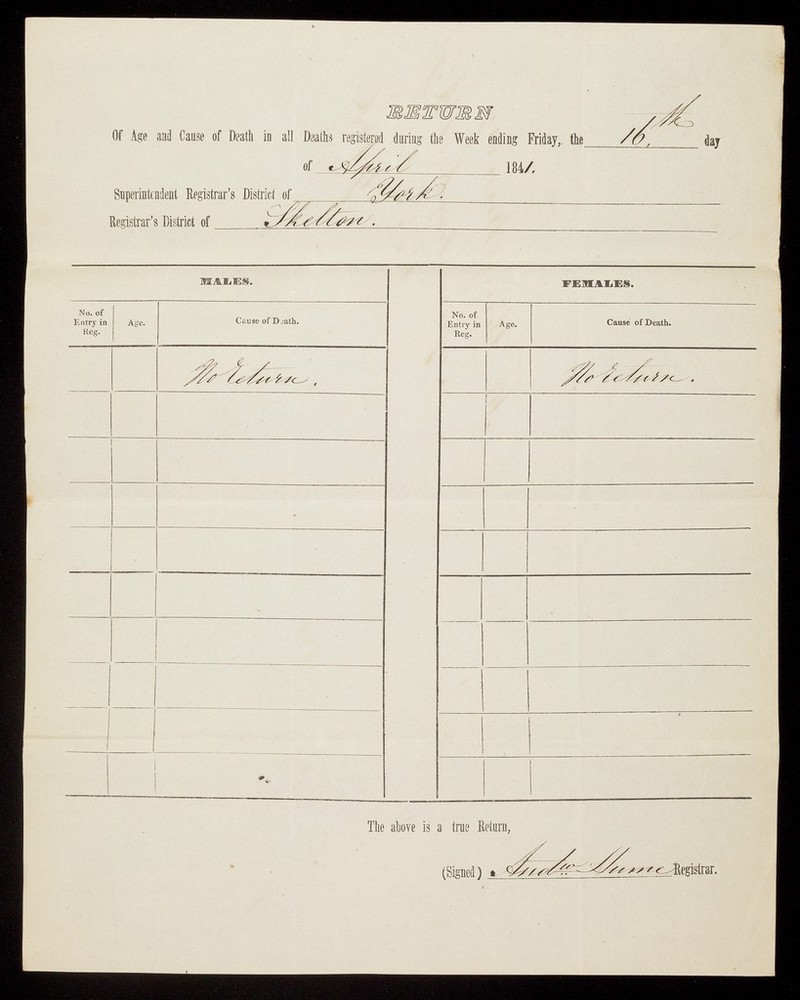 RETURN
Of Age and Cause of Death in all Deaths registered during the Week ending Friday, the 16.th day
of April 1841.
Superintendent Registrar's District of York.
Registrar's District of Skelton.
MALES. FEMALES.
No. of Entry in Reg. Age. Cause of Death. No. of Entry in Reg. Age. Cause of Death.
No return. No return.
The above is a true Return,
(Signed) Andw Hume Registrar.